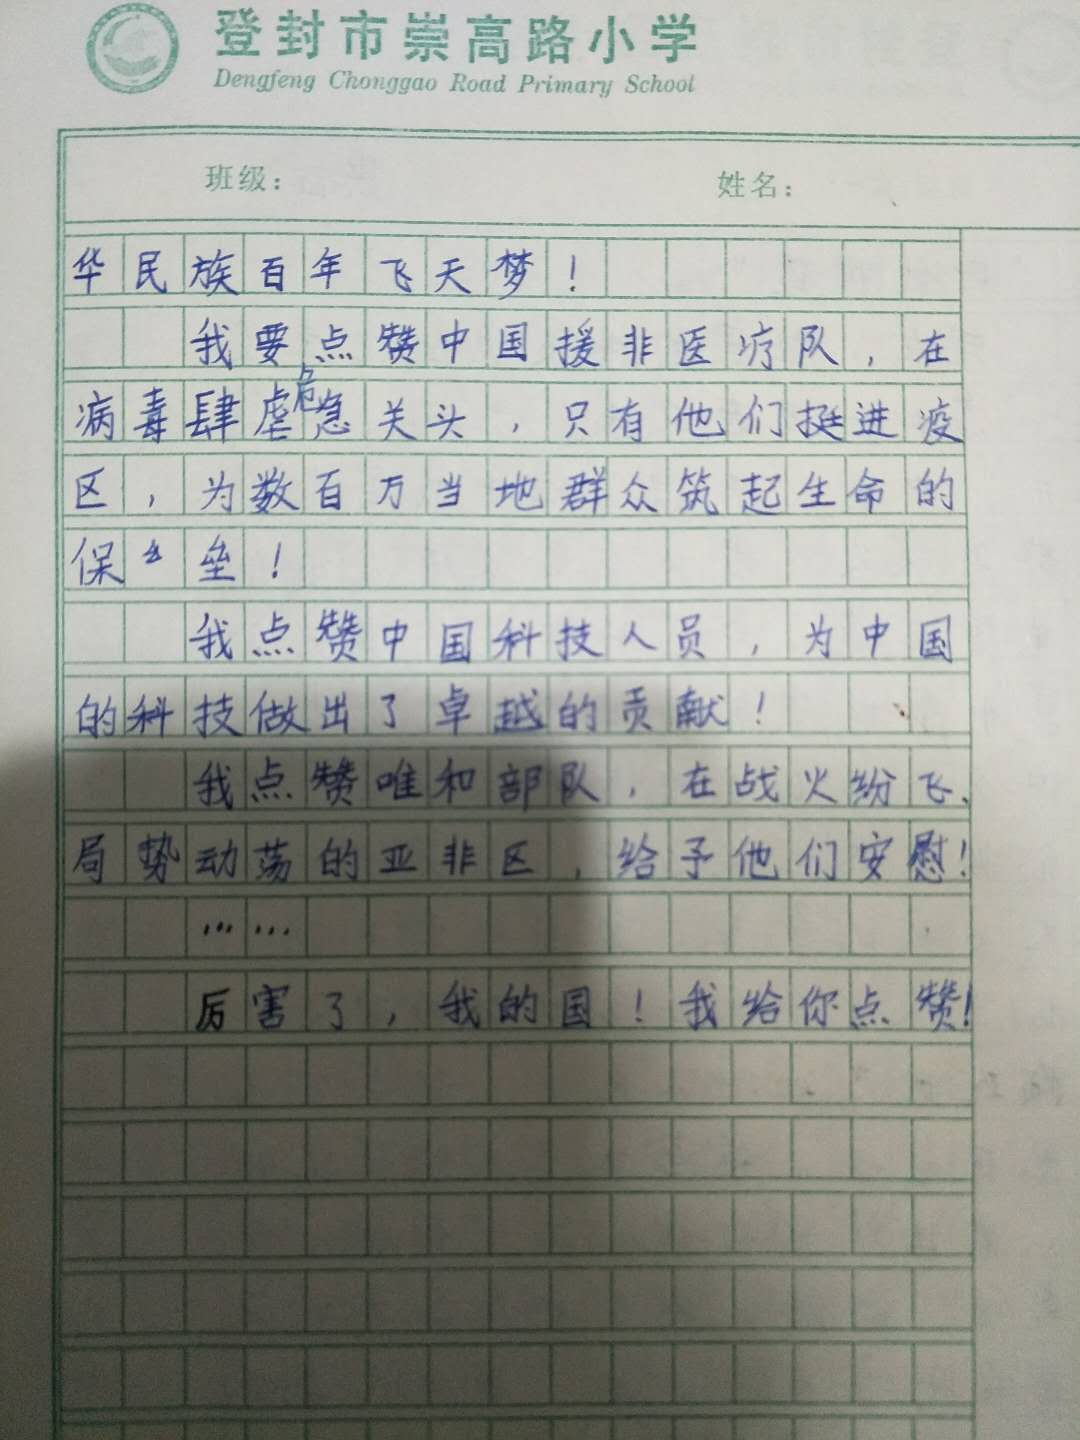 登封市崇高路小学
Dengfeng Chonggao Road Primary School
班级：
姓名：
华民族百年飞天梦！
我要点赞中国援非医疗队，在
病毒肆虐危急关头，只有他们挺进疫
区，为数百万当地群众筑起生命的
保垒！
我点赞中国科技人员，为中国
的科技做出了卓越的贡献！
我点赞唯和部队，在战火纷飞、
局势动荡的亚非区，给予他们安慰！
……
厉害了，我的国！我给你点赞！